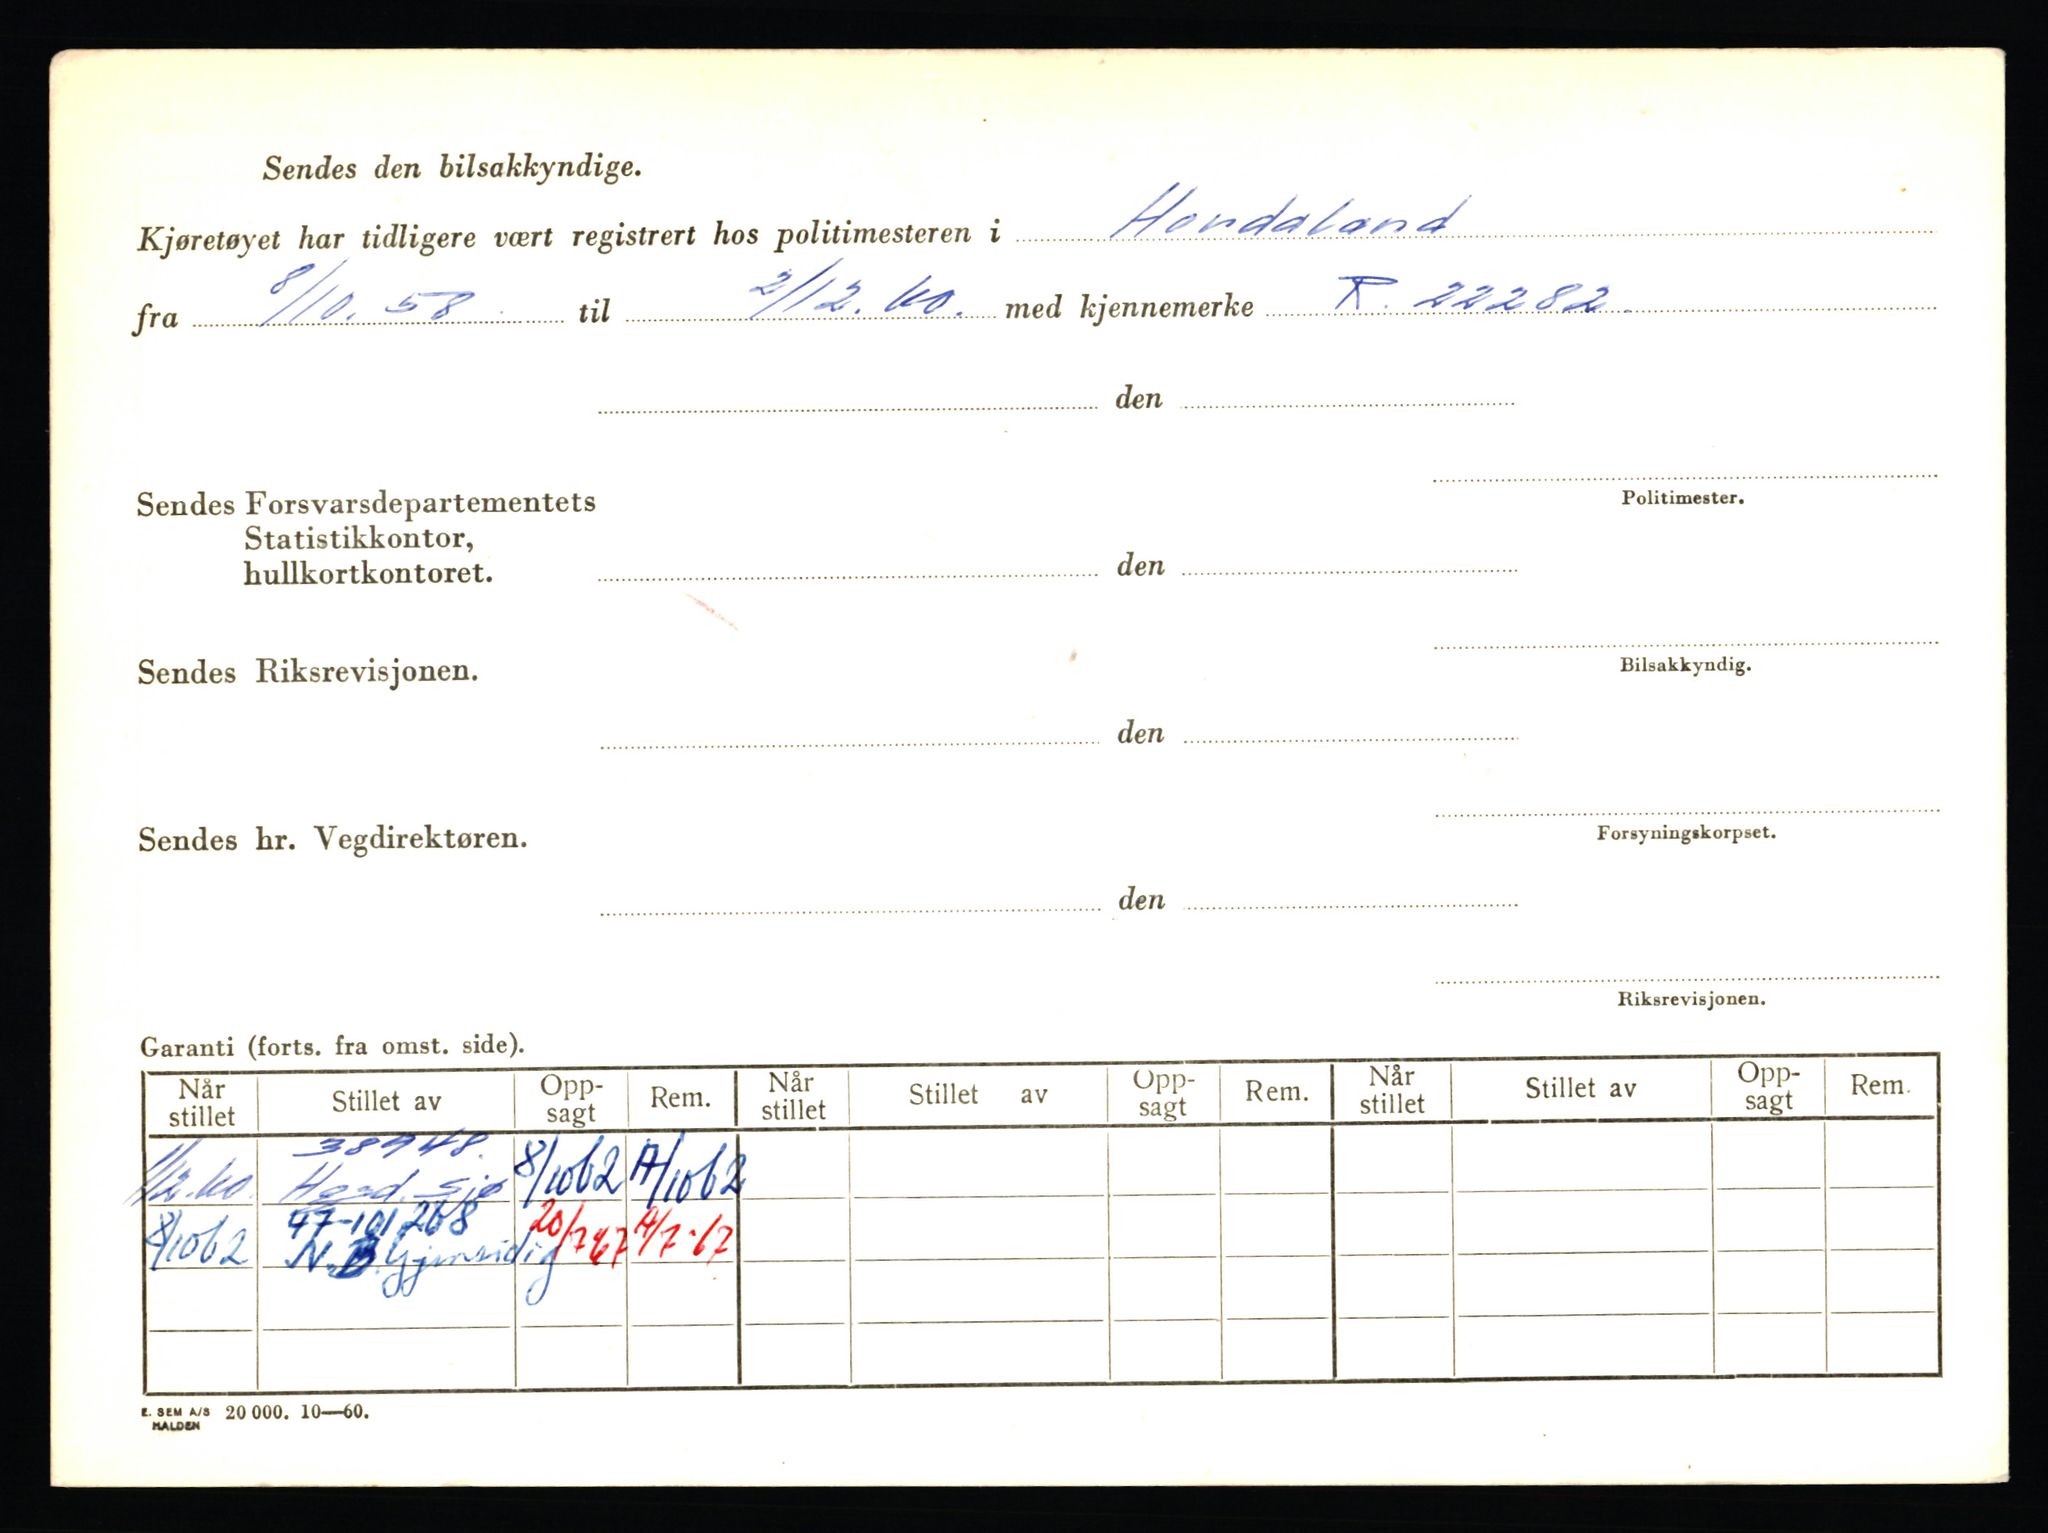 Sendes den bilsakkyndige.
Kjøretøyet har tidligere vært registrert hos politimesteren i Hordaland
fra 8/10. 58 til 2/12. 60. med kjennemerke R. 22282.
den
Politimester.
Sendes Forsvarsdepartementets
Statistikkontor,
hullkortkontoret.
den
Bilsakkyndig.
Sendes Riksrevisjonen.
den
Forsyningskorpset.
Sendes hr. Vegdirektøren.
den
Riksrevisjonen.
Garanti (forts. fra omst. side).
Når stillet Stillet av Opp-sagt Rem. Når stillet Stillet av Opp-sagt Rem. Når stillet Stillet av Opp-sagt Rem.
38948.
1/12.60. Hord. Sjø 8/1062 /1062
47-101268
8/1062 N.B. Gjensidig 20/7 67 4/7-67
E. SEM A/S HALDEN 20 000. 10—60.